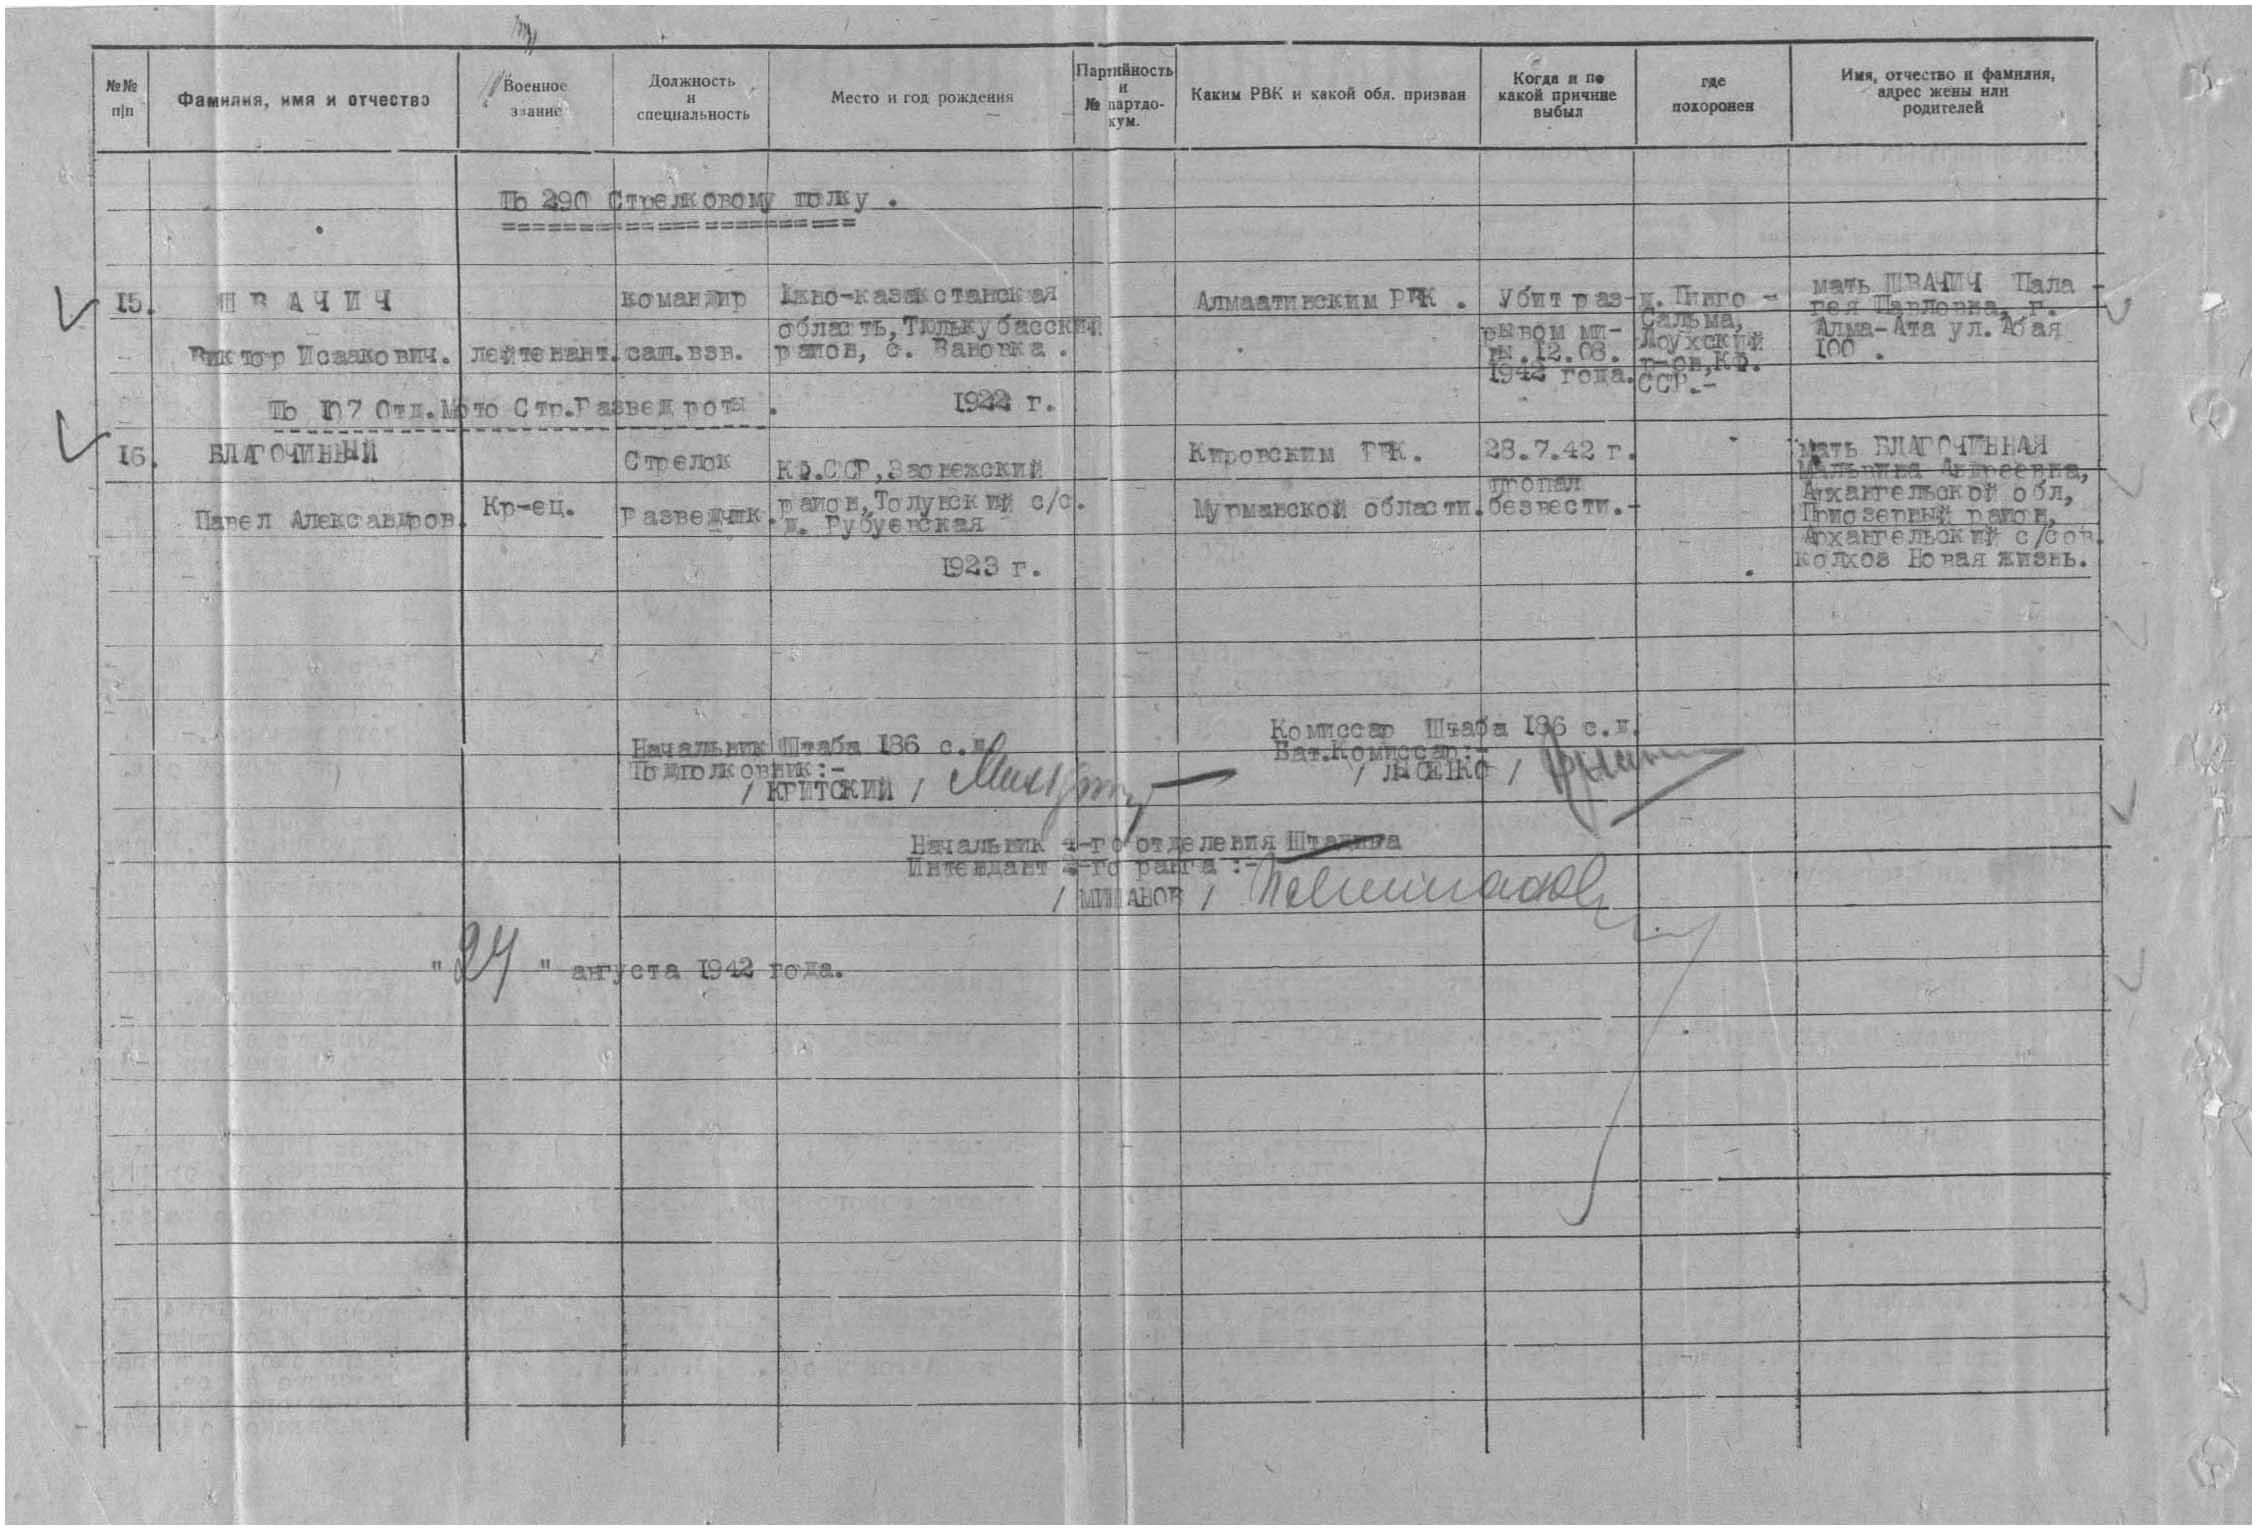 №№ п|п
Фамилия, имя и отчество
Военное звание
Должность и специальность
Место и год рождения
Партийность и № партдокум.
Каким РВК и какой обл. призван
Когда и по какой причине выбыл
где похоронен
Имя, отчество и фамилия, адрес жены или родителей
По 290 Стрелковому полку .
15.
Ш В А Ч И Ч
Виктор Исаакович.
лейтенант.
командир
сап.взв.
Южно-казахстанская
область, Тюлькубасский
район, с. Вановка .
1922 г.
Алмаатинским РВК .
Убит раз-
рывом ми-
ны.12.08.
1942 года.
д. Пинго -
Сальма,
Лоухский
р-он,КФ.
ССР.-
мать ШВАЧИЧ Пала -
гея Павловна, г.
Алма-Ата ул. Абая
100 .
По 107 Отд.Мото Стр.Развед роты .
16.
БЛАГОЧИННЫЙ
Павел Александров.
Кр-ец.
Стрелок
разведчик.
КФ.ССР,Заонежский
район,Толвуский с/с.
д. Рубуевская
1923 г.
Кировским РВК.
Мурманской области.
28.7.42 г.
пропал
безвести.-
мать БЛАГОЧИННАЯ
Мальвина Андреевна,
Архангельской обл,
Приозерный район,
Архангельский с/сов.
колхоз Новая жизнь.
Начальник Штаба 186 с.д.
Подполковник:-
/ КРИТСКИЙ /
Комиссар Штаба 186 с.д.
Бат.Комиссар:-
/ ЛЫСЕНКО /
Начальник 4-го отделения Штадива
Интендант -го ранга :-
/ МИШАНОВ /
"24" августа 1942 года.